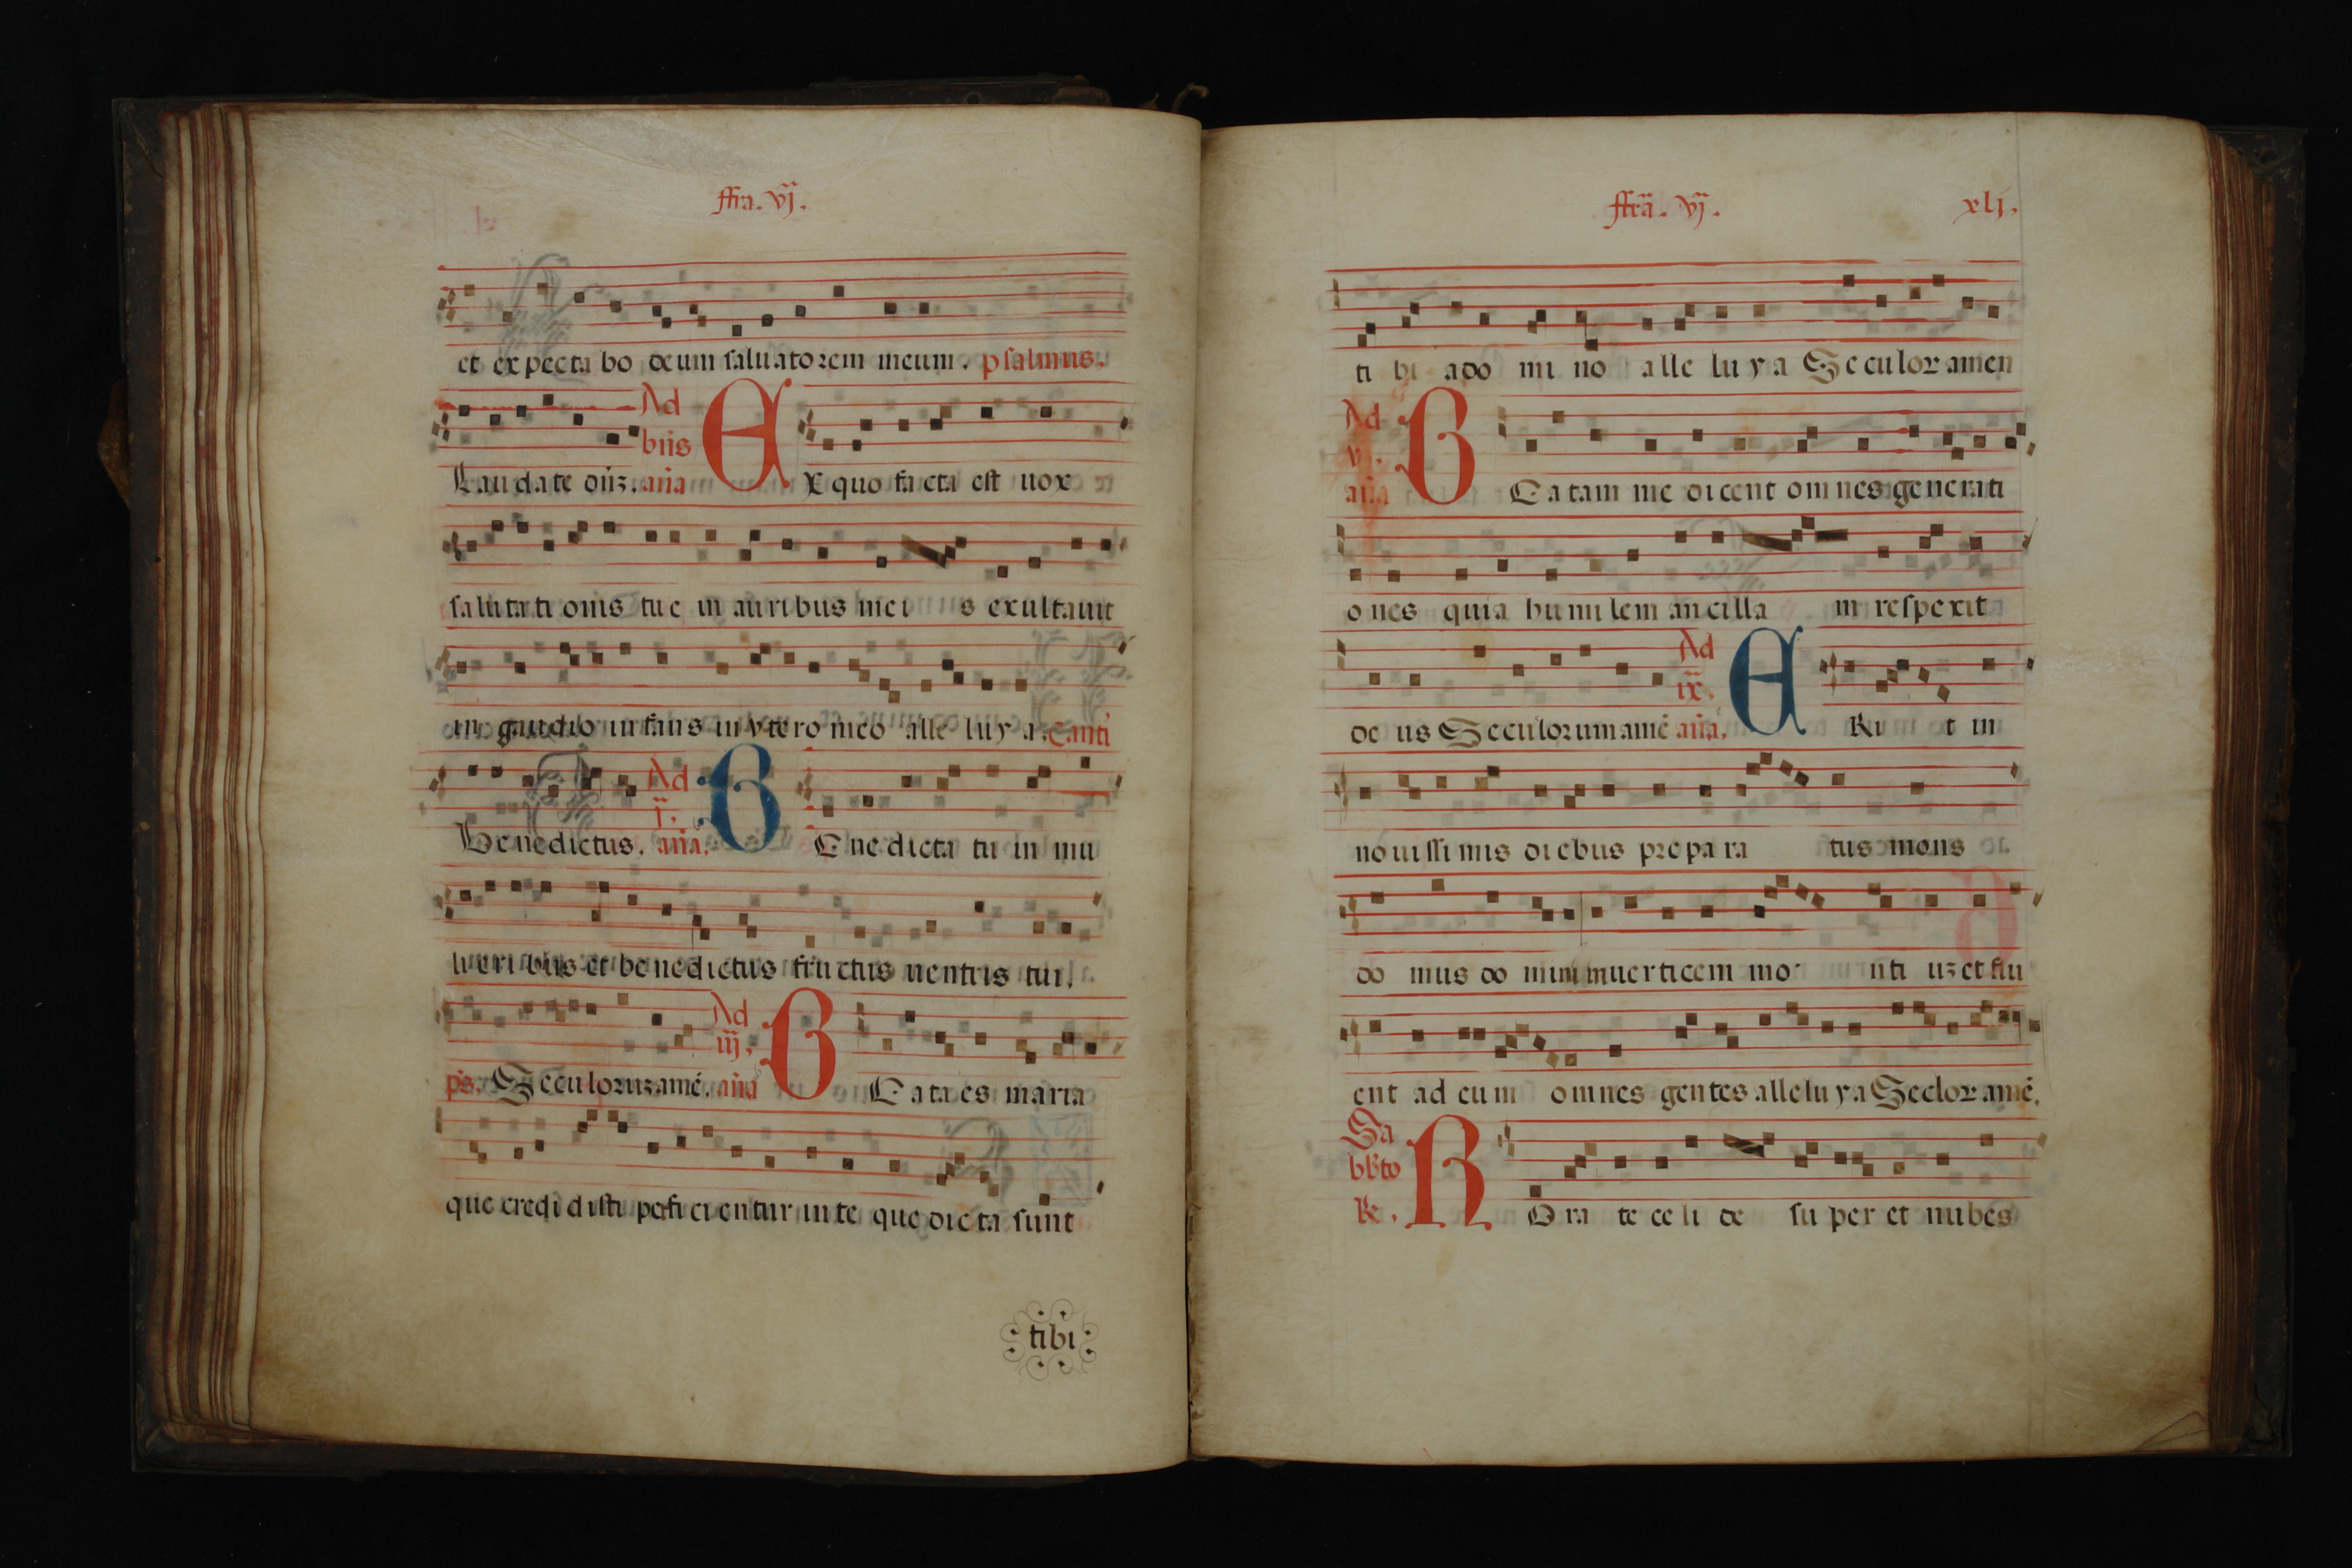 ffra. vj.
et expecta bo deum saluatorem meum. psalmus.
Ad
bñs
Laudate dñz. aña E X quo facta est uox
salutati onis tue in auribus mei s exultauit
in gaudio infans in vtero meo alle luya. Canti
Ad
j.
Benedictus. aña. B E ne dicta tu in mu
lieri bus et benedictus fructus uentris tui.
Ad
iij.
ps. Seculoruz amē. aña B E ata es maria
que credi disti perfici entur in te que dicta sunt
tibi
ffrā. vj. xlj.
ti bi a do mi no alle luya Seculor amen
Ad
vj.
aña B E a tam me dicent omnes generati
o nes quia humilem ancilla m respexit
Ad
ix.
de us Seculorum amē aña. E Ri t in
nouissi mis diebus prepa ra tus mons
do mus do mini in uerticem mo nti uz et flu
ent ad eum omnes gentes alleluya Seclor amē.
Sa
bb̄to
R. R O ra te celi de su per et nubes